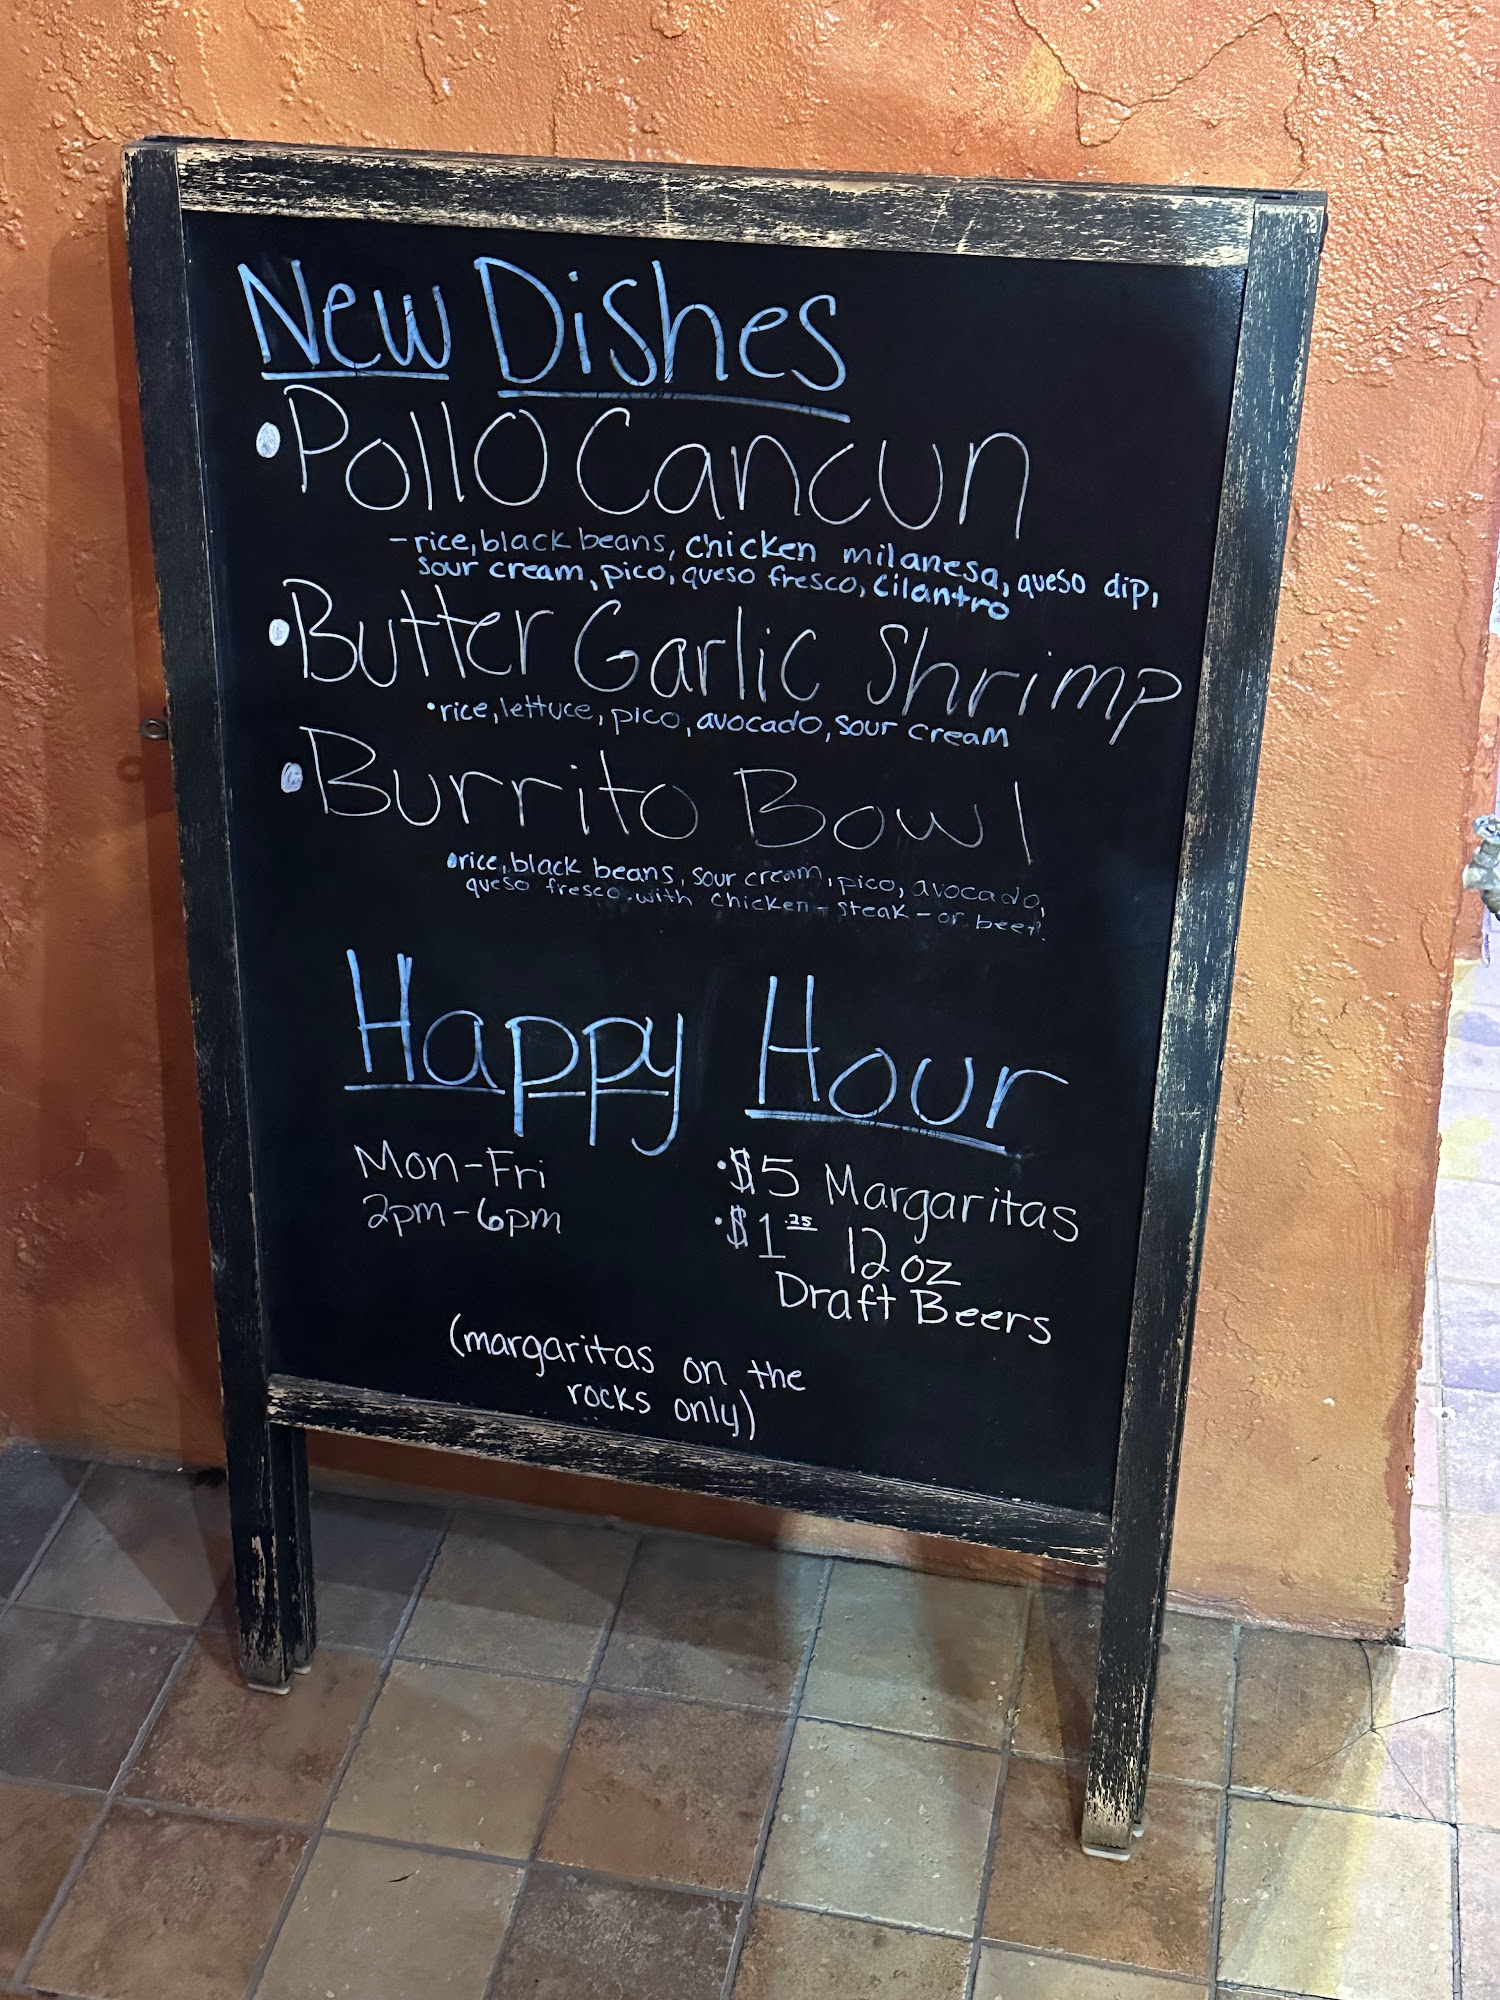 New Dishes
•Pollo Cancun
-rice, black beans, chicken milanesa, queso dip,
sour cream, pico, queso fresco, cilantro
•Butter Garlic Shrimp
•rice, lettuce, pico, avocado, sour cream
•Burrito Bowl
•rice, black beans, sour cream, pico, avocado,
queso fresco. with chicken - steak - or beef.
Happy Hour
Mon-Fri
2pm-6pm
•$5 Margaritas
•$1.25 12oz
Draft Beers
(margaritas on the
rocks only)